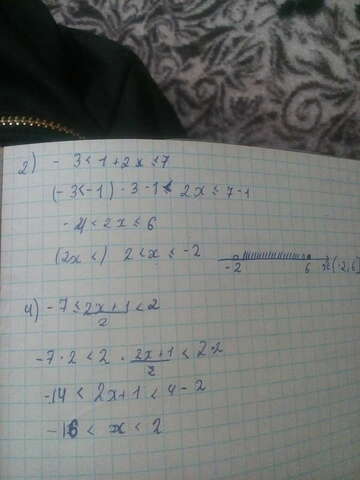 2) - 3 < 1 + 2x ≤ 7
(- 3 < -1) - 3 - 1 < 2x ≤ 7 - 1
- 4 < 2x ≤ 6
(2x <) 2 < x ≤ -2
-2 6 x∈(-2,6]
4) - 7 ≤ \frac{2x+1}{2} < 2
-7 · 2 < 2 · \frac{2x+1}{2} ≤ 2·2
-14 < 2x+1 < 4 - 2
-16 < x < 2